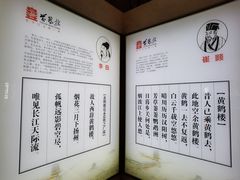 李白
【黄鹤楼送孟浩然之广陵】
故人西辞黄鹤楼，
烟花三月下扬州。
孤帆远影碧空尽，
唯见长江天际流
崔颢
【黄鹤楼】
昔人已乘黄鹤去，
此地空余黄鹤楼。
黄鹤一去不复返，
白云千载空悠悠。
晴川历历汉阳树，
芳草萋萋鹦鹉洲。
日暮乡关何处是，
烟波江上使人愁。